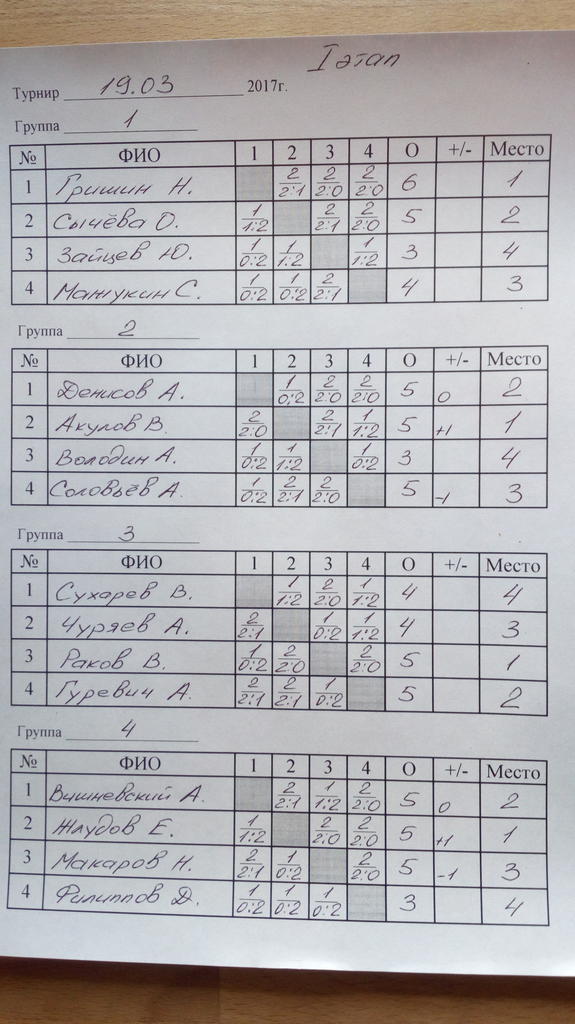 I этап
Турнир 19.03 2017г.
Группа 1
№ ФИО 1 2 3 4 О +/- Место
1 Гришин Н. 2 2:1 2 2:0 2 2:0 6 1
2 Сычёва О. 1 1:2 2 2:1 2 2:0 5 2
3 Зайцев Ю. 1 0:2 1 1:2 1 1:2 3 4
4 Мажукин С. 1 0:2 1 0:2 2 2:1 4 3
Группа 2
№ ФИО 1 2 3 4 О +/- Место
1 Денисов А. 1 0:2 2 2:0 2 2:0 5 0 2
2 Акулов В. 2 2:0 2 2:1 1 1:2 5 +1 1
3 Володин А. 1 0:2 1 1:2 1 0:2 3 4
4 Соловьёв А. 1 0:2 2 2:1 2 2:0 5 -1 3
Группа 3
№ ФИО 1 2 3 4 О +/- Место
1 Сухарев В. 1 1:2 2 2:0 1 1:2 4 4
2 Чуряев А. 2 2:1 1 0:2 1 1:2 4 3
3 Раков В. 1 0:2 2 2:0 2 2:0 5 1
4 Гуревич А. 2 2:1 2 2:1 1 0:2 5 2
Группа 4
№ ФИО 1 2 3 4 О +/- Место
1 Вишневский А. 2 2:1 1 1:2 2 2:0 5 0 2
2 Жлудов Е. 1 1:2 2 2:0 2 2:0 5 +1 1
3 Макаров Н. 2 2:1 1 0:2 2 2:0 5 -1 3
4 Филиппов Д. 1 0:2 1 0:2 1 0:2 3 4